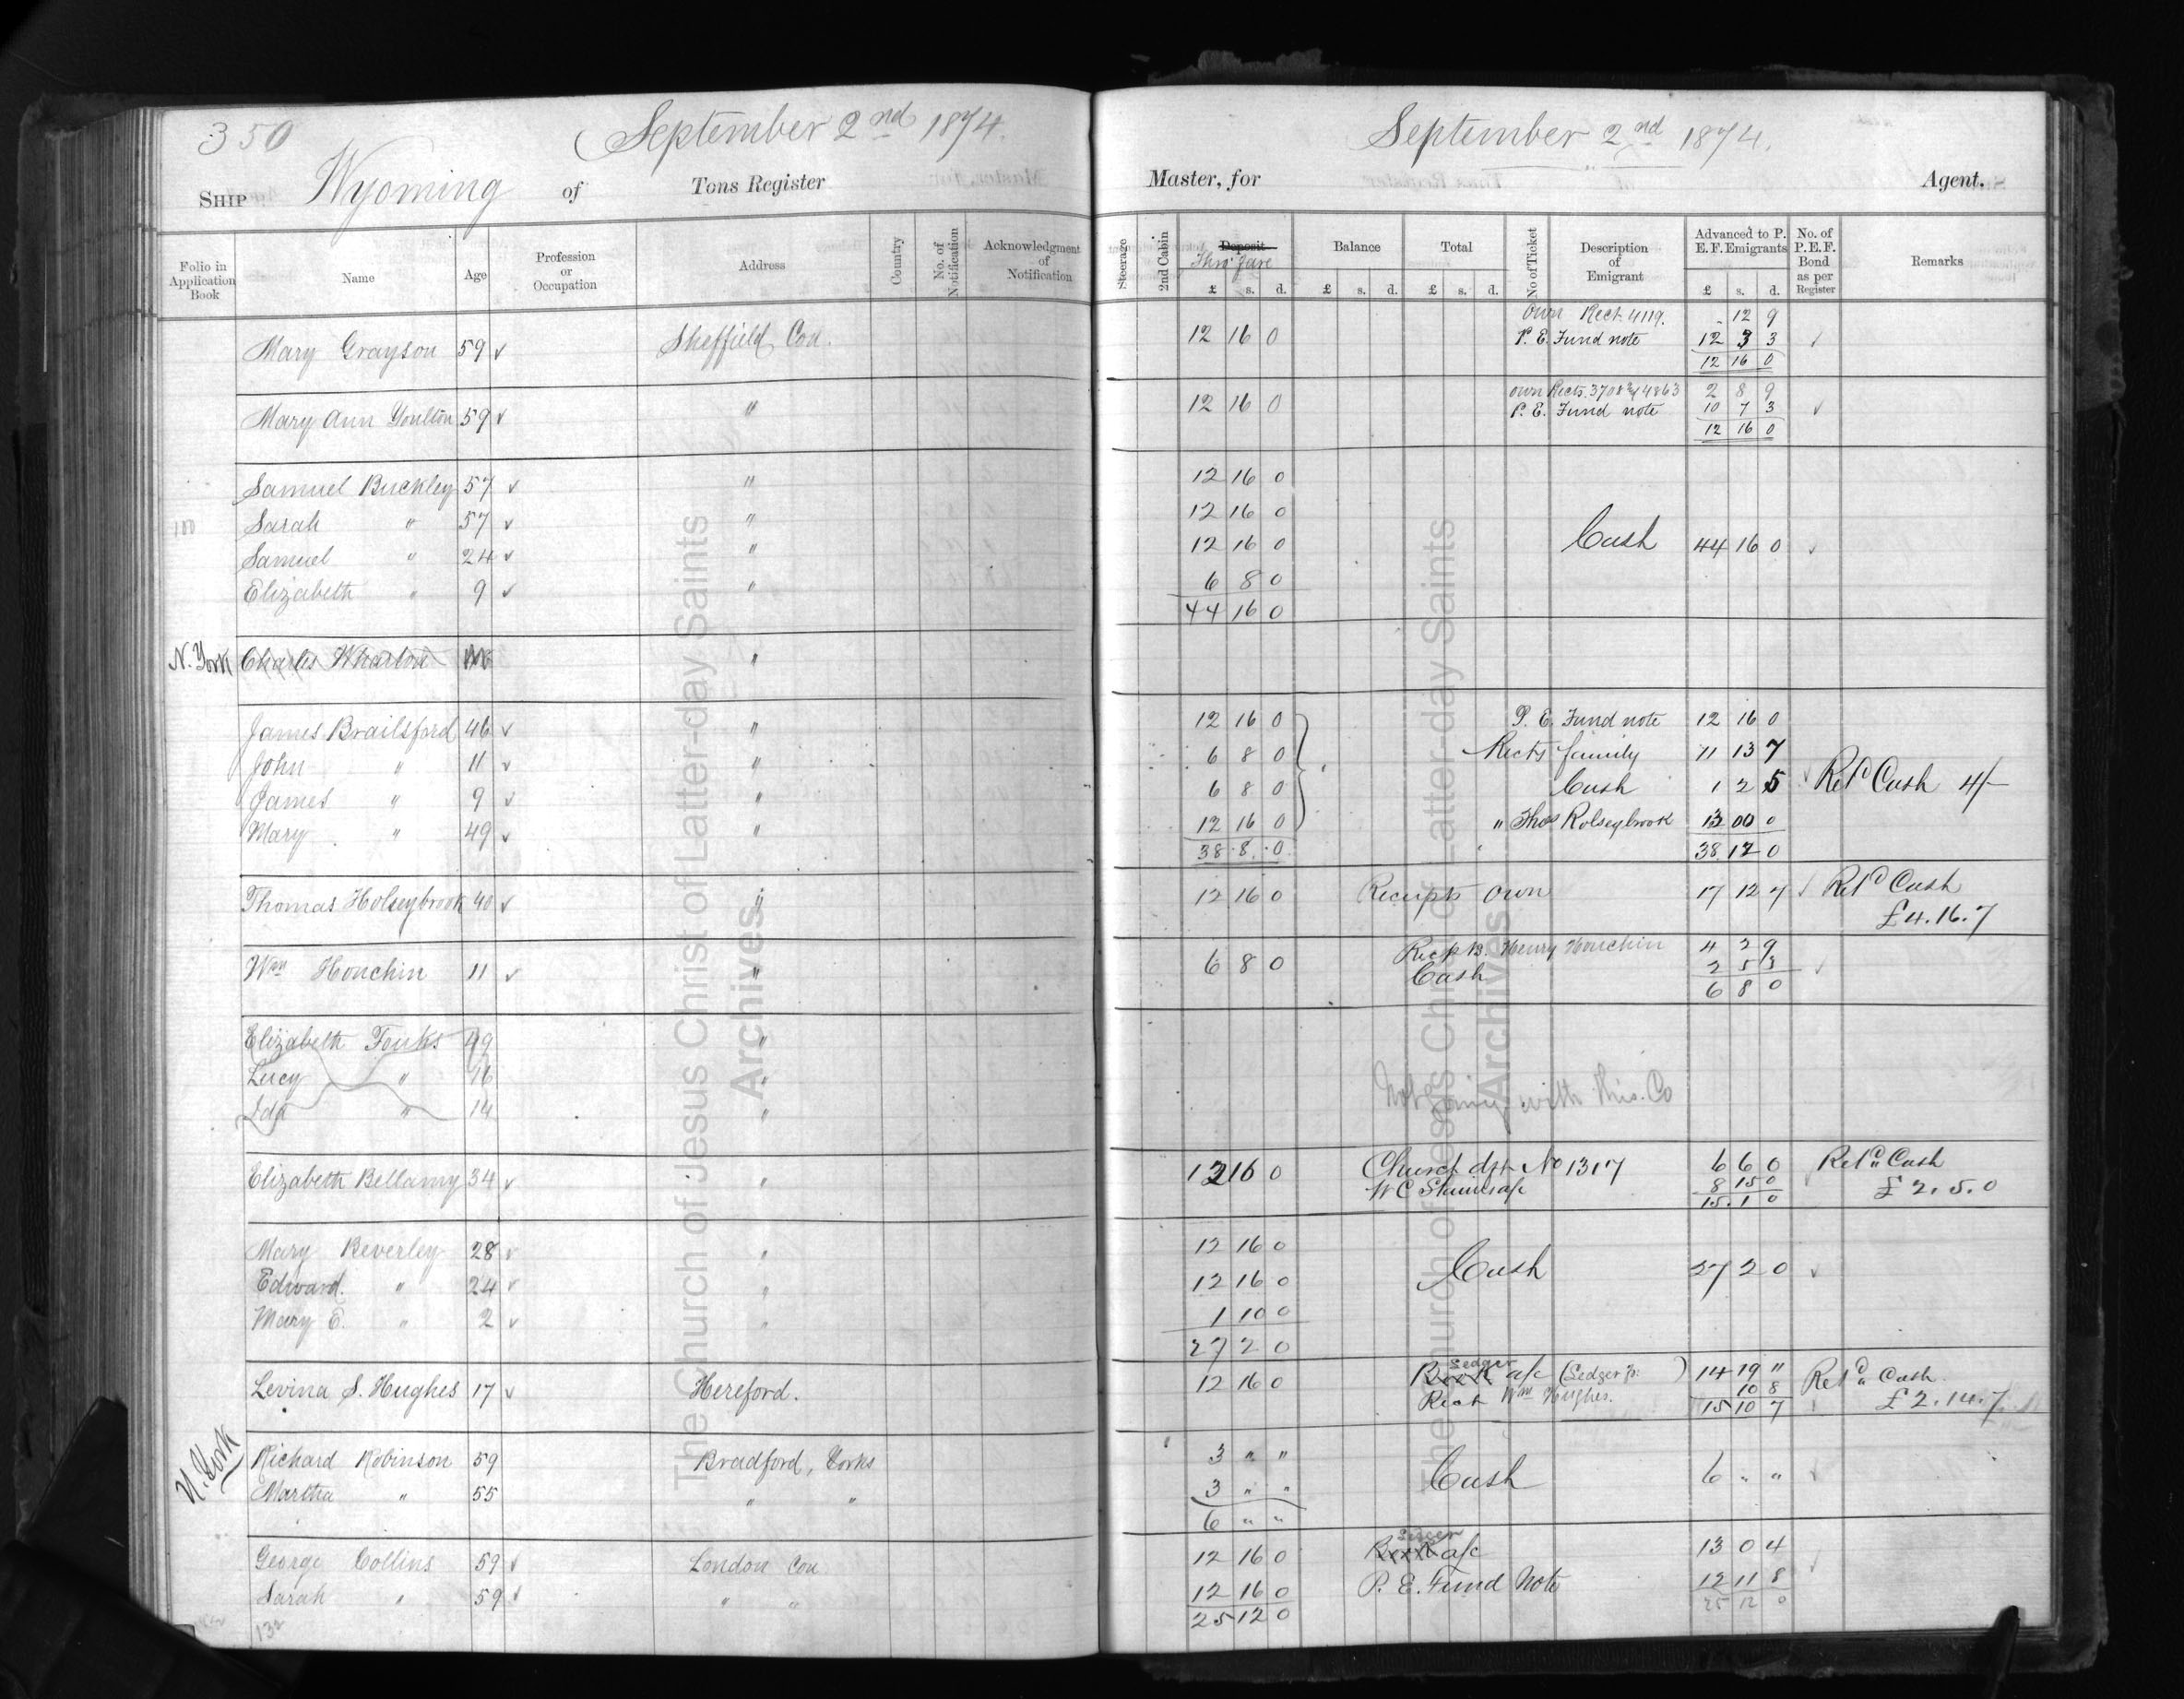 350 September 2nd 1874. September 2nd 1874.
SHIP Wyoming of Tons Register Master, for Agent.
Folio in Application Book Name Age Profession or Occupation Address Country No. of Notification Acknowledgment of Notification Steerage 2nd Cabin Deposit Thro' fare £ s. d. Balance £ s. d. Total £ s. d. No of Ticket Description of Emigrant Advanced to P. E. F. Emigrants £ s. d. No. of P.E.F. Bond as per Register Remarks
own Rect 4119. - 12 9
Mary Grayson 59 ✓ Sheffield Con. 12 16 0 P. E. Fund note 12 3 3 ✓
12 16 0
own Rects. 3708 4863 2 8 9
Mary Ann Youlton 59 ✓ " 12 16 0 P. E. Fund note 10 7 3 ✓
12 16 0
Samuel Buckley 57 ✓ " 12 16 0
100 Sarah " 57 ✓ " 12 16 0
Samuel " 24 ✓ " 12 16 0 Cash 44 16 0 ✓
Elizabeth " 9 ✓ " 6 8 0
44 16 0
N. York Charles Wharton "
James Brailsford 46 ✓ " 12 16 0 P. E. Fund note 12 16 0
John " 11 ✓ " 6 8 0 Rects family 11 13 7
James " 9 ✓ " 6 8 0 Cash 1 2 5 ✓ Retd Cash 4/-
Mary " 49 ✓ " 12 16 0 " Thos Rolseybrook 13 00 0
38 . 8 . 0 38 12 0
Thomas Holseybrook 40 ✓ " 12 16 0 Receipts own 17 12 7 ✓ Retd Cash
£4.16.7
Wm Houchin 11 ✓ " 6 8 0 Henry Houchin 4 2 9
Cash 2 5 3 ✓
6 8 0
Elizabeth Fouks 49 "
Lucy " 16 "
" 14 " Not going with this Co
Elizabeth Bellamy 34 ✓ " 12 16 0 Church No 1317 6 6 0 Retd Cash
8 15 0 £2.5.0
15.1 0
Mary Beverley 28 ✓ " 12 16 0
Edward. " 24 ✓ " 12 16 0 Cash 27 2 0 ✓
Mary E. " 2 ✓ " 1 10 0
27 2 0
Ledger
Levina S. Hughes 17 ✓ Hereford. 12 16 0 Book a/c (Ledger p. ) 14 19 " Retd Cash.
Rect Wm Hughes. 10 8 £2.14.7
15 10 7
N. York Richard Robinson 59 Bradford, Yorks 3 " "
Martha " 55 " " 3 " " Cash 6 " " ✓
6 " "
Ledger
George Collins 59 ✓ London Con 12 16 0 Book a/c 13 0 4
Sarah " 59 ✓ " " 12 16 0 P. E. Fund Note 12 11 8
132 25 12 0 25 12 0
The Church of Jesus Christ of Latter-day Saints
Archives
The Church of Jesus Christ of Latter-day Saints
Archives